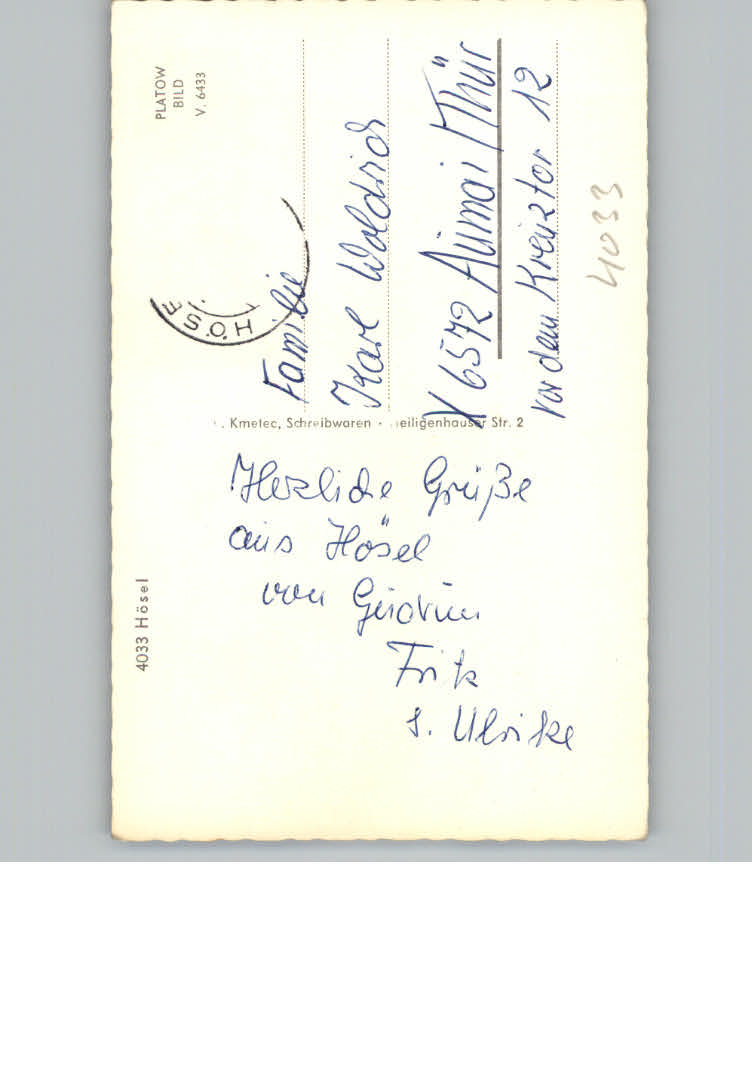 PLATOW
BILD
V. 6433
HÖSE
Familie
Karl
X 6572 Auma / Thür
vor dem Kreuztor 12
4033
Kmetec, Schreibwaren · eiligenhauser Str. 2
4033 Hösel
Herzliche Grüße
aus Hösel
von Gudrun
Fritz
u. Ulrike